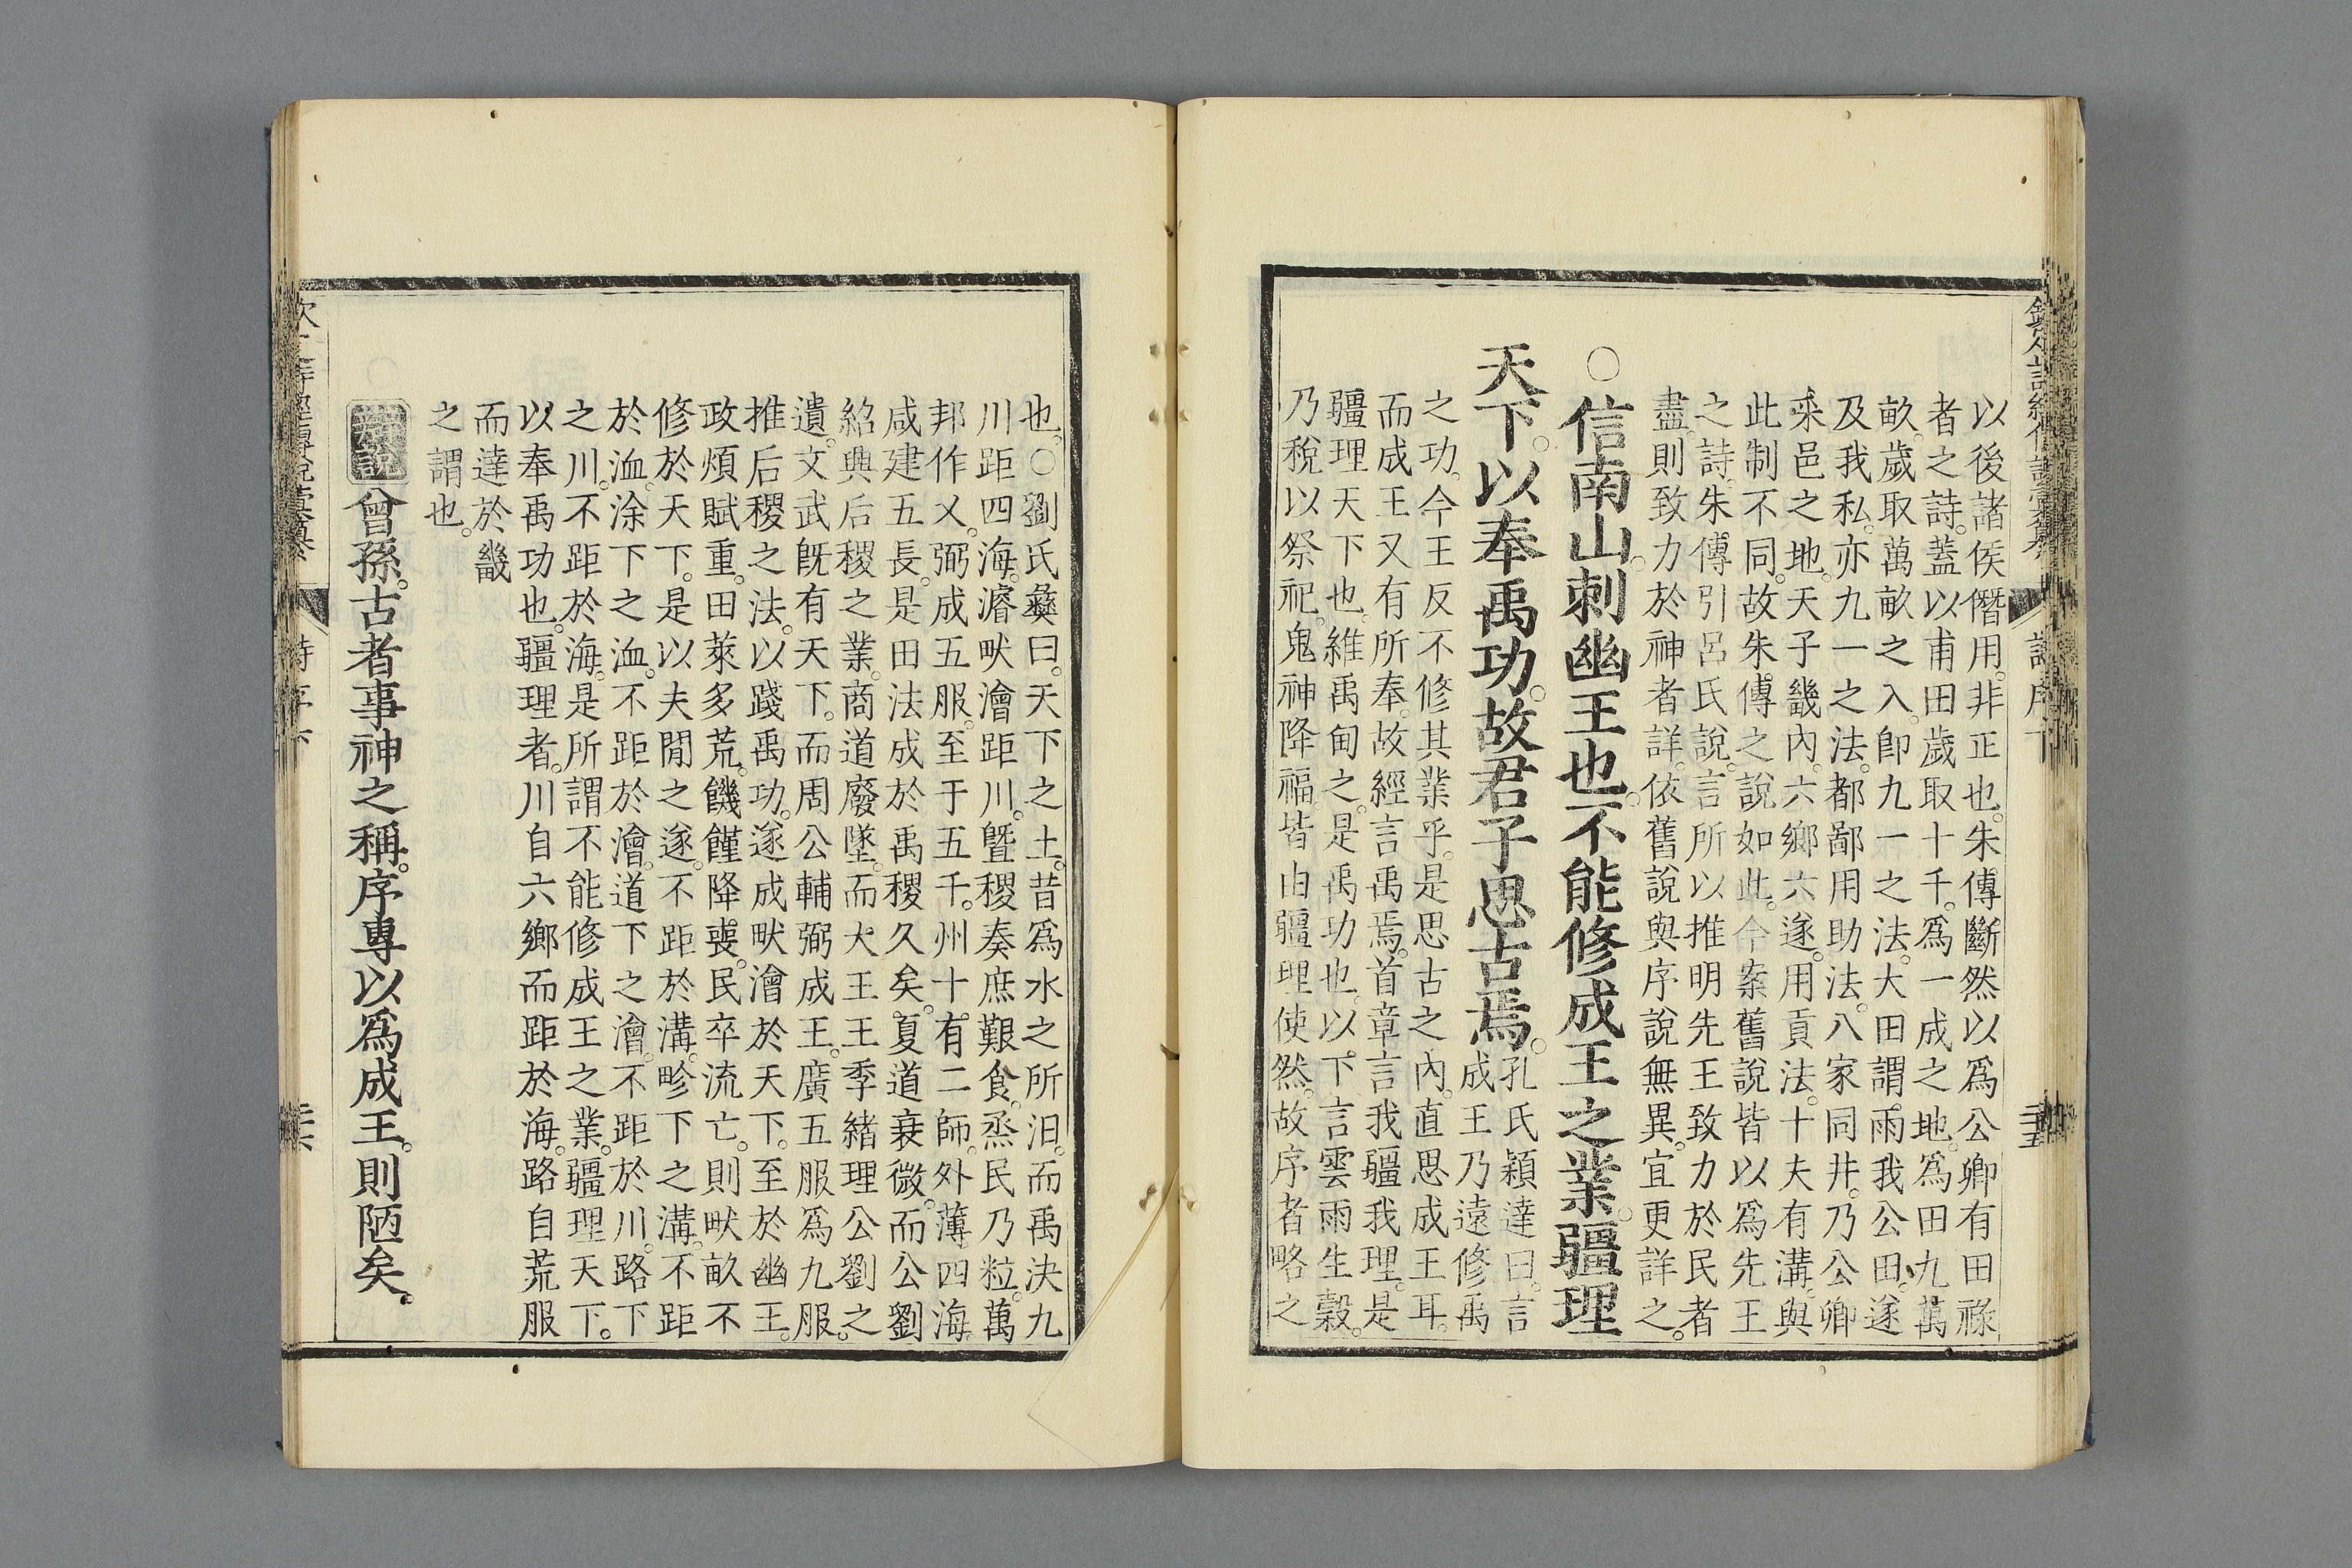 以後諸侯僭用。非正也。朱傳斷然以爲公卿有田祿
者之詩。蓋以甫田歲取十千。爲一成之地。爲田九萬
畝。歲取萬畝之入。卽九一之法。大田謂。雨我公田。遂
及我私。亦九一之法。都鄙用助法。八家同井。乃公卿
采邑之地。天子畿內。六鄉六遂。用貢法。十夫有溝。與
此制不同。故朱傳之說如此。今案舊說皆以爲先王
之詩。朱傳引呂氏說。言所以推明先王致力於民者
盡。則致力於神者詳。依舊說與序說無異。宜更詳之。
○信南山。刺幽王也。不能修成王之業。疆理
天下。以奉禹功。故君子思古焉。孔氏穎達曰。言
成王乃遠修禹
之功。今王反不修其業乎。是思古之內。直思成王耳。
而成王又有所奉。故經言禹焉。首章言我疆我理。是
疆理天下也。維禹甸之。是禹功也。以下言雲雨生穀。
乃稅以祭祀。鬼神降福。皆由疆理使然。故序者略之
也。○劉氏彝曰。天下之土。昔爲水之所汨。而禹決九
川。距四海。濬畎澮距川。曁稷奏庶艱食。烝民乃粒。萬
邦作乂。弼成五服。至于五千。州十有二師。外薄四海。
咸建五長。是田法成於禹稷久矣。夏道衰微。而公劉
紹興后稷之業。商道廢墜。而大王王季緒理公劉之
遺。文武旣有天下。而周公輔弼成王。廣五服爲九服。
推后稷之法。以踐禹功。遂成畎澮於天下。至於幽王。
政煩賦重。田萊多荒。饑饉降喪。民卒流亡。則畎畝不
修於天下。是以夫閒之遂。不距於溝。畛下之溝。不距
於洫。涂下之洫。不距於澮。道下之澮。不距於川。路下
之川。不距於海。是所謂不能修成王之業。疆理天下。
以奉禹功也。疆理者。川自六鄉而距於海。路自荒服
而達於畿
之謂也。
辯說曾孫。古者事神之稱。序專以爲成王。則陋矣。
詩序下